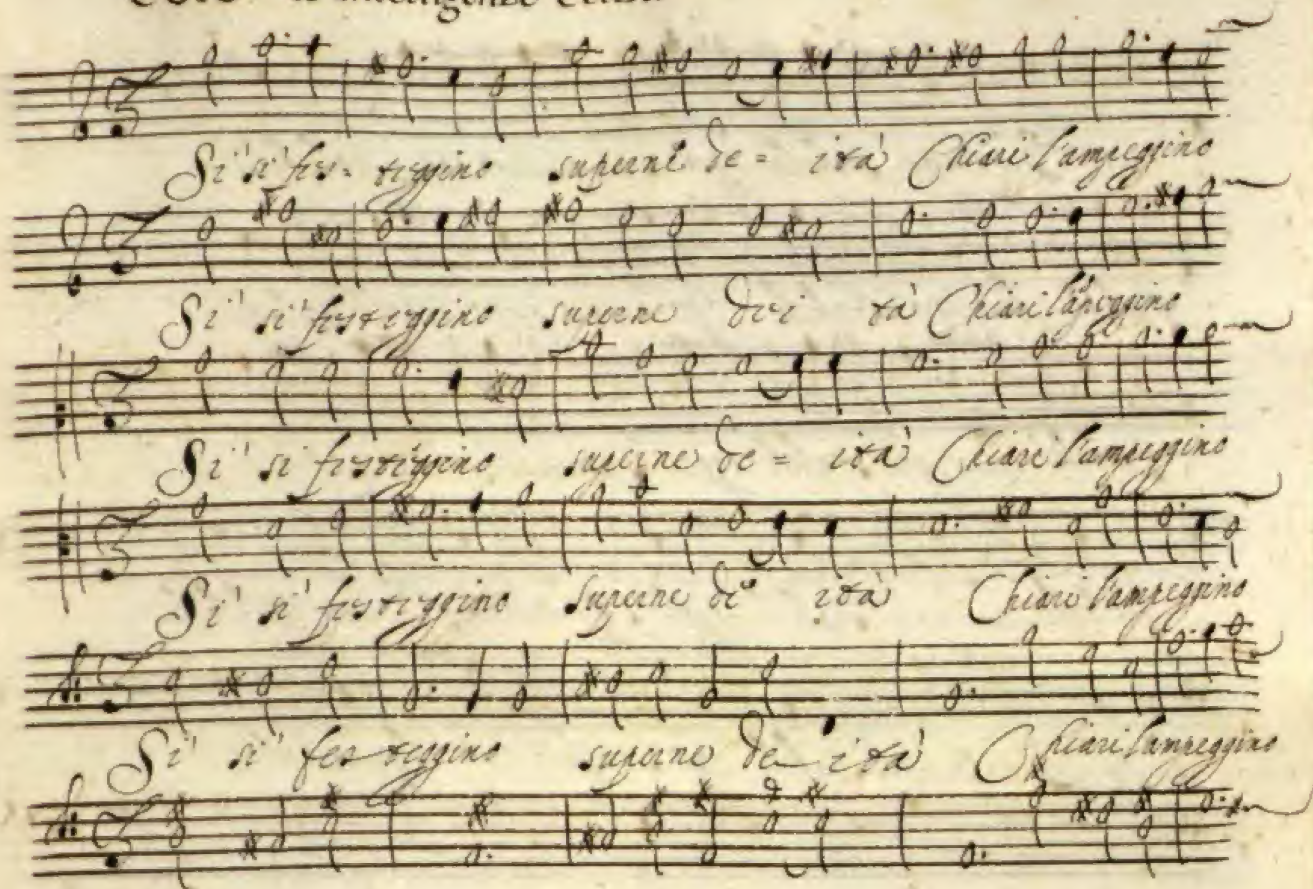 Si' si' fes= teggino superne de= ità Chiari lampeggino
Si' si' festeggino superne dei tà Chiari lampeggino
Si' si festeggino superne de= ità Chiari lampeggino
Si' si' festeggino superne de ità Chiari lampeggino
Si' si' fes teggino superne de ità Chiari lampeggino